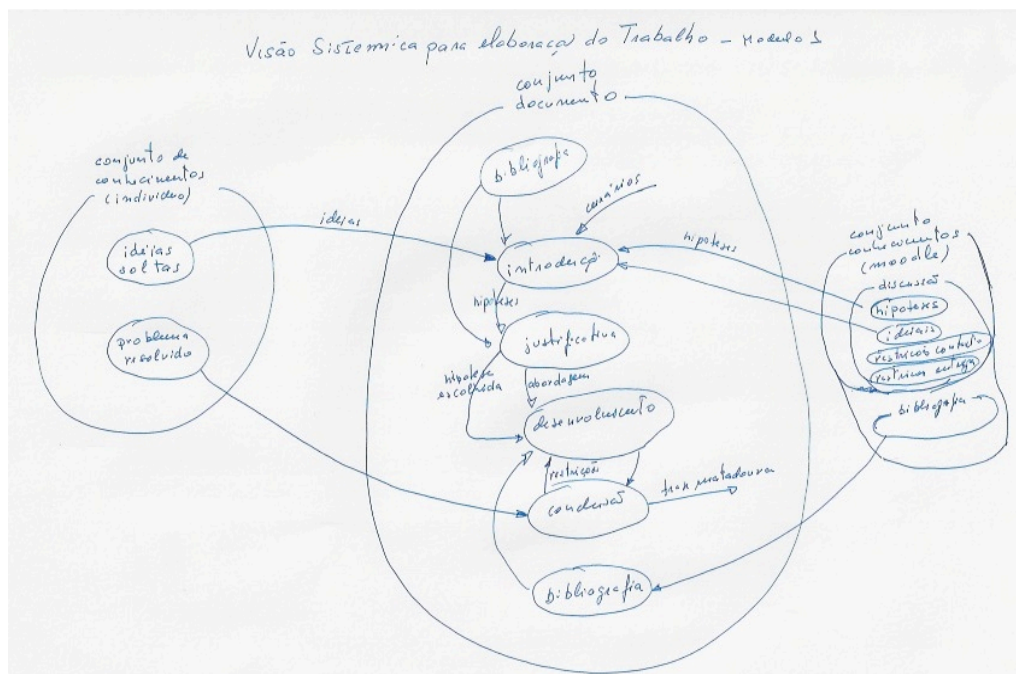 Visão Sistemica para elaboraçaõ do Trabalho - Modulo 1
conjunto
documento
conjunto de
conhecimentos
(individuo)
idéias
soltas
problema
resolvido
ideias
bibliografia
cenários
introdução
hipoteses
hipoteses
justificativa
hipotese
escolhida
abordagem
desenvolvimento
restrições
conclusão
frase matadoura
bibliografia
conjunto
conhecimentos
(moodle)
discussão
hipoteses
ideiais
restricoes contexto
restricoes entrega
bibliografia